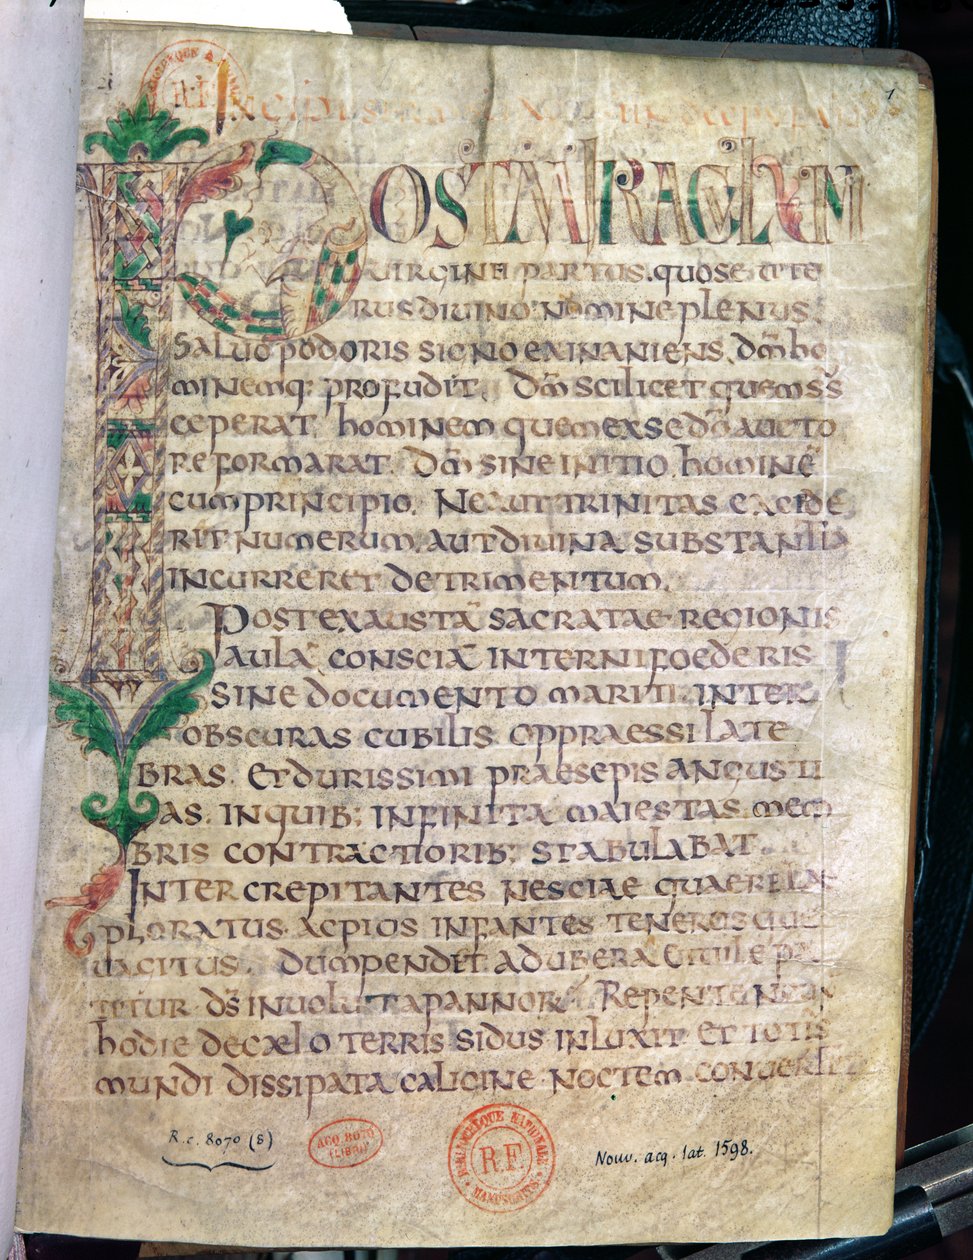 1
POST MIRACULUM
UIRGINEI PARTUS. quo se ute
rus diuino nomine plenus.
Saluo pudoris signo exinaniens, dm̄ ho
minemq: profudit. Dm̄ scilicet quem sus
ceperat. hominem quem ex se dm̄ aucto
re formarat. Dm̄ sine initio, hominē
cum principio. Ne aut trinitas excide
rit numerum, aut diuina substantia
incurreret detrimentum.
Post exaustā sacratae regionis
aulā consciā interni foederis
sine documento mariti. inter
obscuras cubilis oppraessi late
bras. Et durissimi praesepis angusti
as. in quib; infinita maiestas mem
bris contractiorib; stabulabat.
Inter crepitantes nesciae quaerellas
ploratus. ac pios infantes teneros que
uagitus. Dum pendit ad ubera
titur ds̄ inuolut a pannor Repente
hodie de caelo terris sidus inluxit et totis
mundi dissipata caligine noctem conuertit
R.c. 8070 (8)
ACQ. 8070
(LIBRI)
BIBLIOTHEQUE NATIONALE
R.F.
MANUSCRITS
Nouv. acq. lat. 1598.